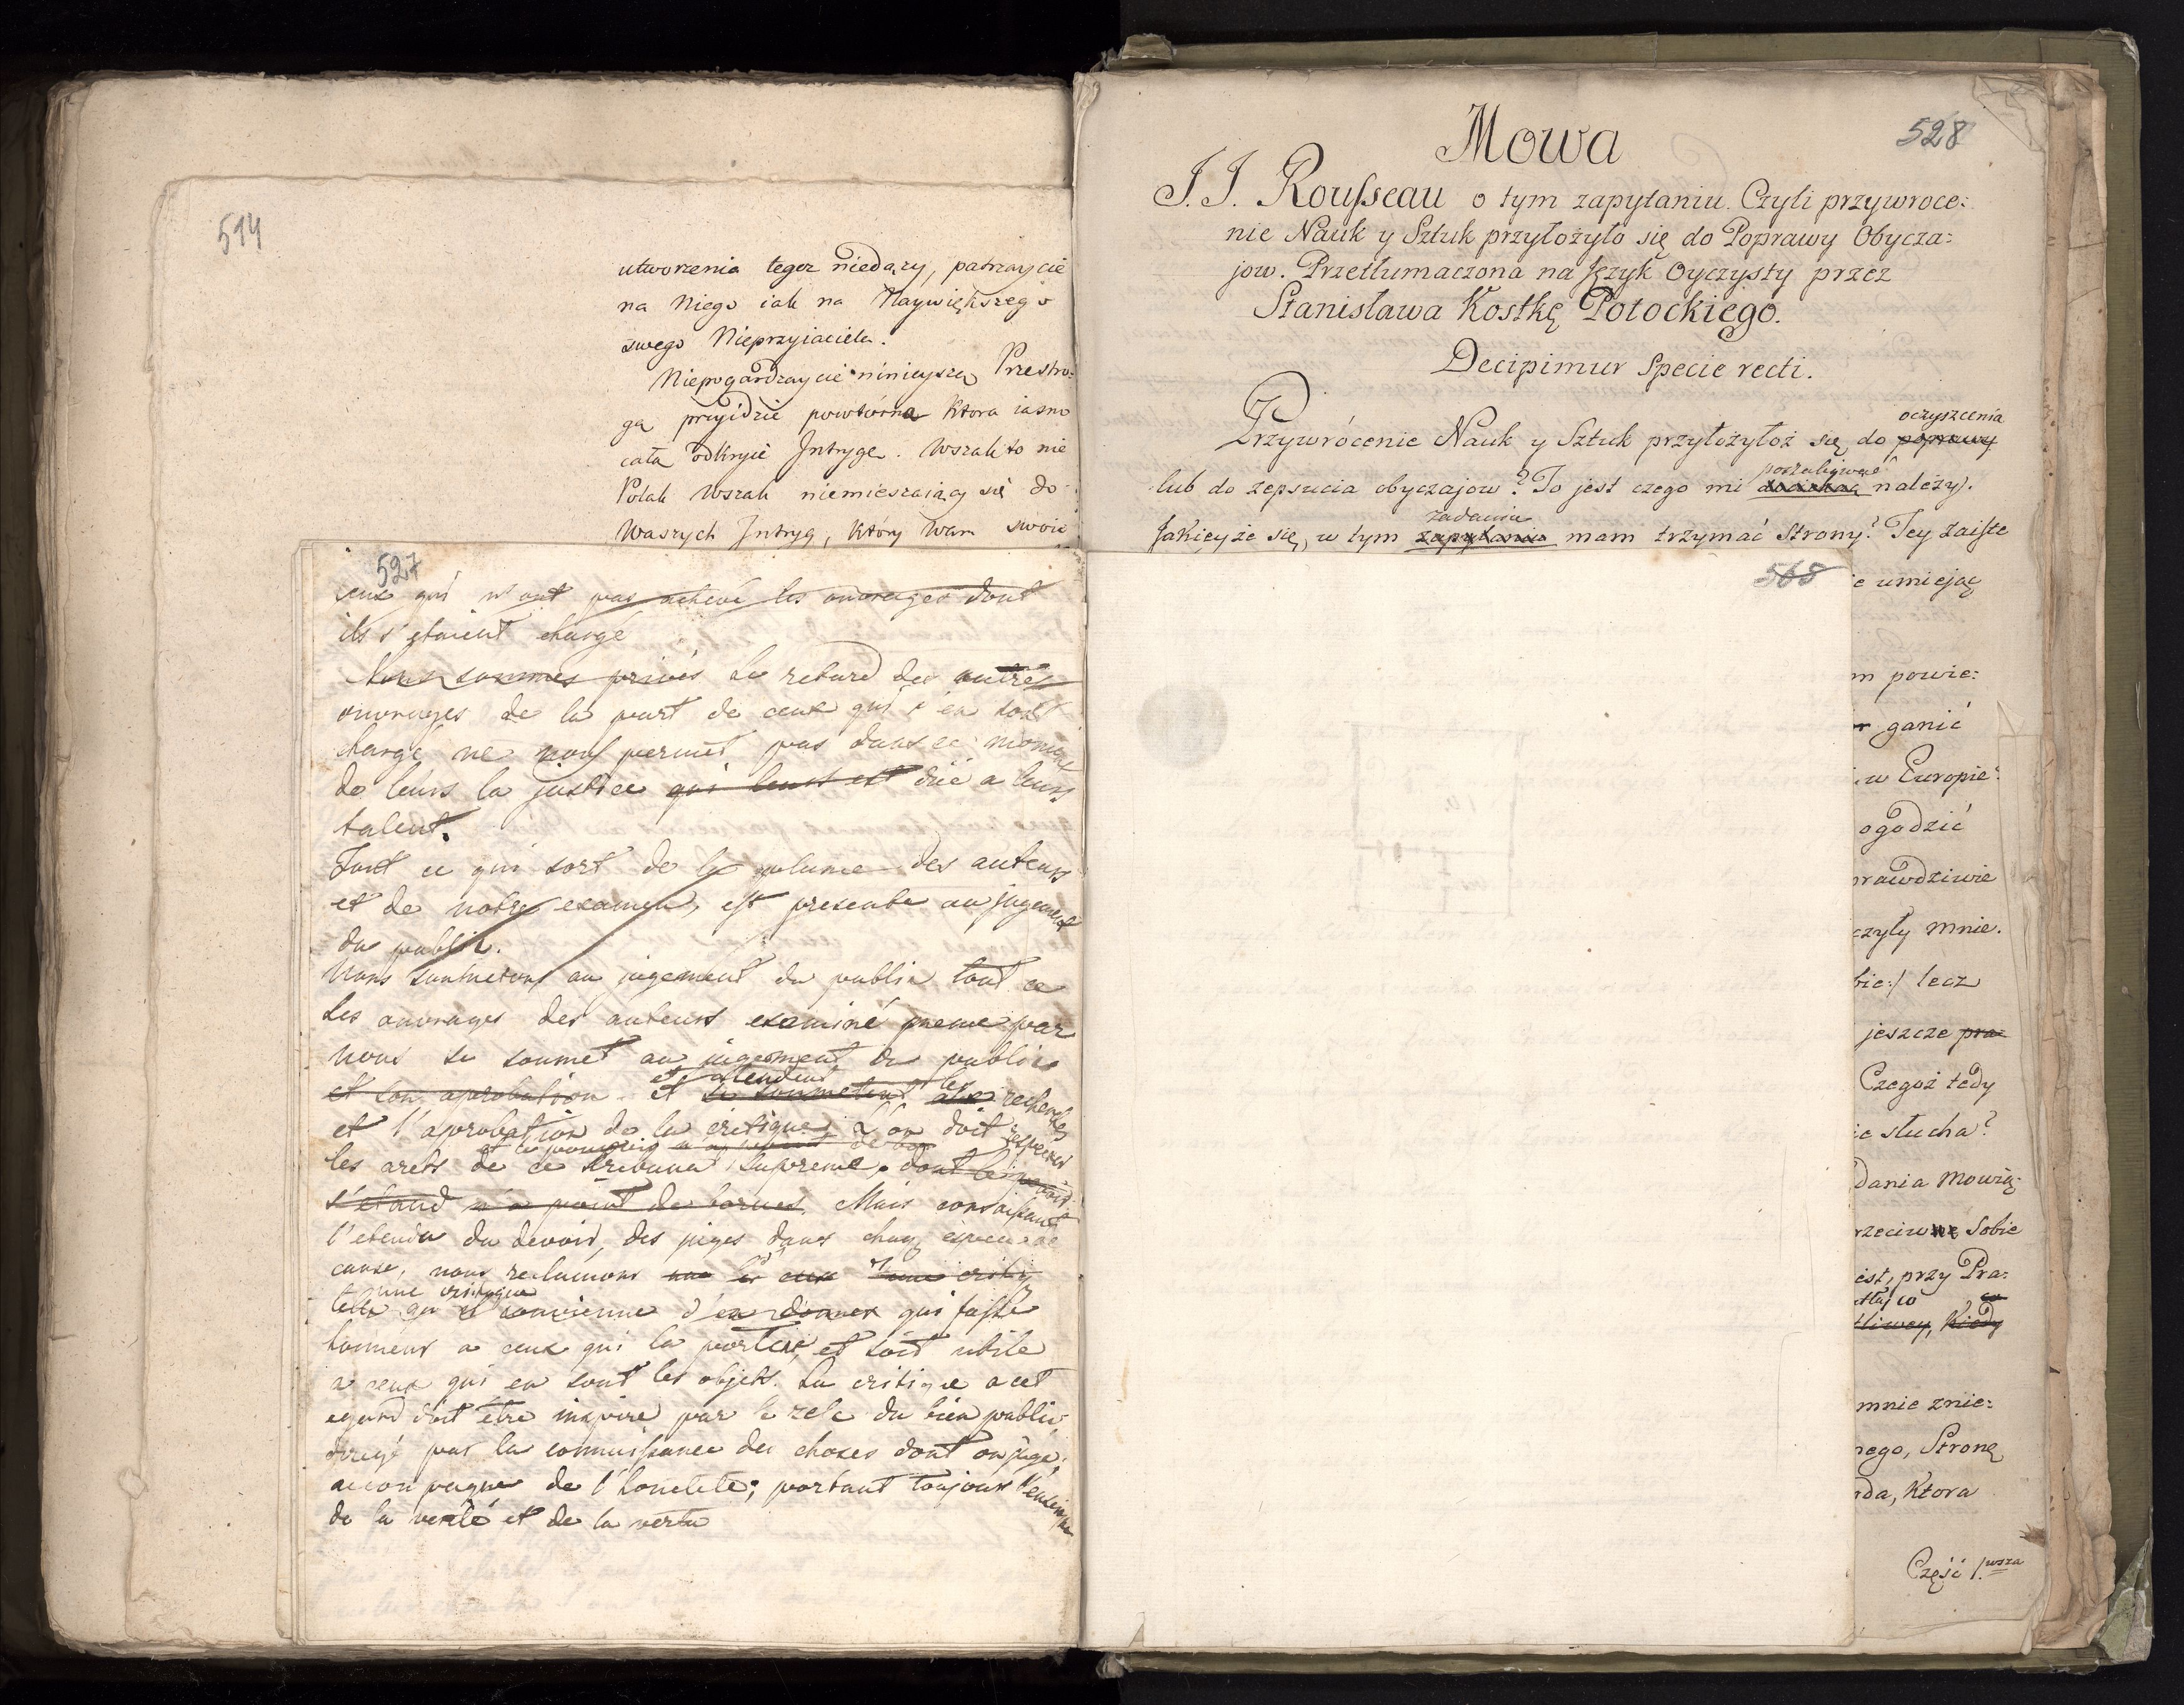 514
utworzenia tegoz niedązy, patrzaycie
na Niego iak na Naywiększego
swego Nieprzyiaciela.
Niepogardzaycie ninieyszą Przestro:
gą przyidzie powtórna Ktora iasno
całą odkryie Intrygę. Wszak to nie
Polak Wszak niemieszaiący się do
Waszych Intryg, Który Wam swoie
527
ceux qui n'ont pas achevé les ouvrages dont
ils s'etaient chargé
Nous sommes privés Le retard des autres
ouvrages de la part de ceux qui s'en sont
chargé ne nous permet pas dans ce moment
de leurs la justice qui leurs est düe a leurs
talent.
Tout ce qui sort de la plume des auteurs
et de notre examen, est presenté au jugement
du public.
Nous soumetons au jugement du public tout ce
Les ouvrages des auteurs examiné par
nous se soumet au jugement du public
et son aprobation et attendent et se soumetent les aux recherches
et l'aprobation de la critique, L'on doit respecter
les arets de ce tribunal supreme, dont le pouvoir
s'etand n'a point de bornes. Mais conoissant
l'etendu du devoir, des juges dans chaq espece de
cause, nous reclamons
une critique
telle qu il convienne d'en donner qui fasse
honneur a ceux qui la portent, et soit utile
a ceux qui en sont les objets. La critique a cet
egard doit être inspiré par le zele du bien public
dirigé par la connoissance des choses dont on juge,
accompagné de l'honeteté; portant toujours l'enseigne
de la verité et de la vertu
528
Mowa
J. J. Rousseau o tym zapytaniu. Czyli przywroce:
nie Nauk y Sztuk przyłożyło się do Poprawy Obycza:
jow. Przetłumaczona na Język Oyczysty przez
Stanisława Kostkę Potockiego.
Decipimur Specie recti.
oczyszcenia
Przywrócenie Nauk y Sztuk przyłożyłoż się do poprawy
lub do zepsucia obyczajow? To jest czego mi dociekać należy.
zadaniu
Jakieyże się, w tym zapytaniu mam trzymać Strony? Tey zaiste
568
ie umiejąc
m powie:
ganić
w Europie
ogodzić
rawdziwie
czyły mnie.
bie:/ lecz
jeszcze pra
Czegoż tedy
ie słucha?
dania Mowią:
rzeciw Sobie
est, przy Pra:
tliwey, Kiedy
mnie znie:
nego, Stronę
da, Ktora
Część 1. wsza